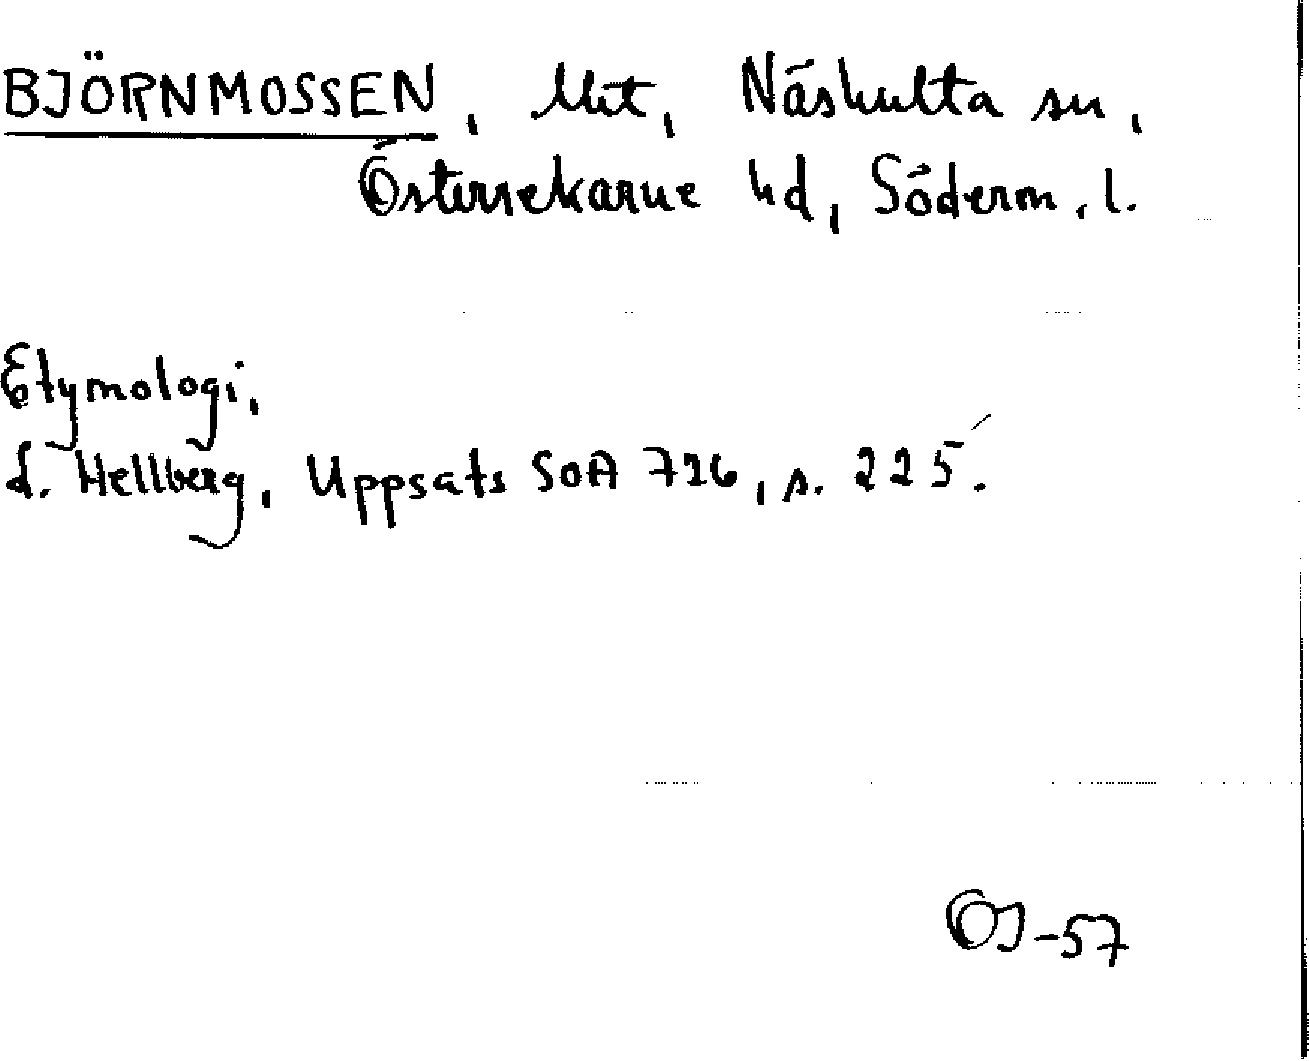 BJÖRNMOSSEN, Näshulta sn,
Österrekarne hd, Söderm. l.
Etymologi,
L. Hellberg, Uppsats SOA 726, s. 225.
OJ-57